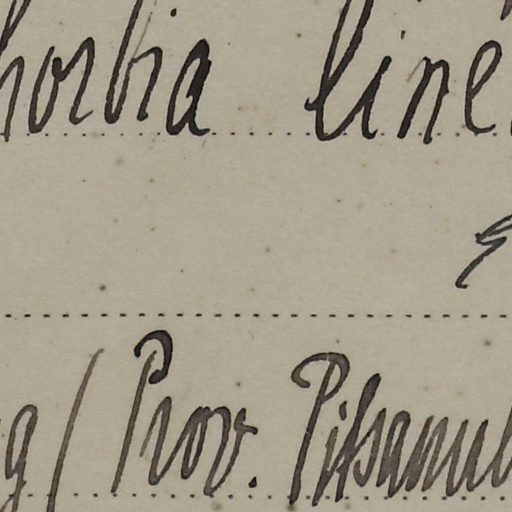 horbia line
g (Prov. Pitsanul